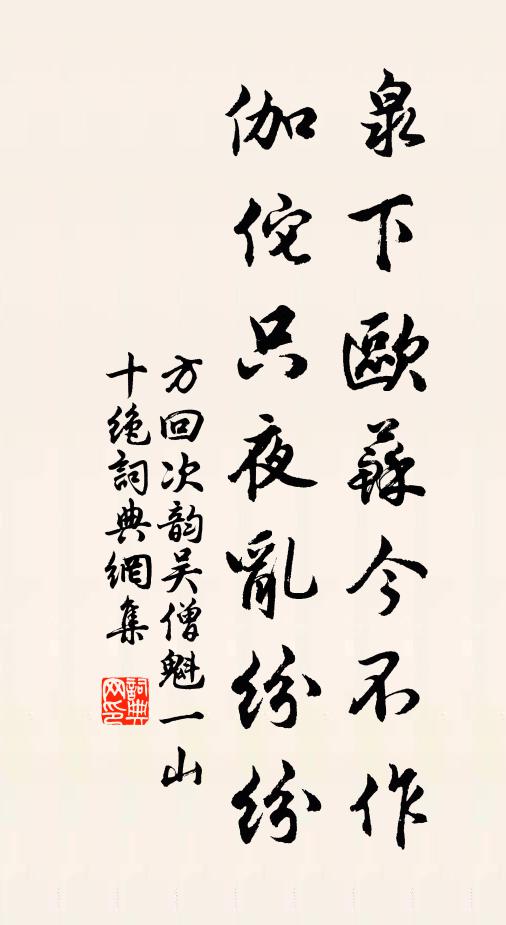 泉下歐蘇今不作
伽佗只夜亂紛紛
方回次韵吴僧魁一山
十绝詞典網集
詞典网印